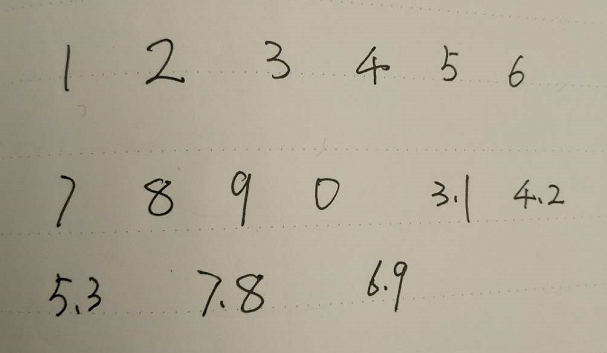 1 2 3 4 5 6
7 8 9 0 3.1 4.2
5.3 7.8 6.9